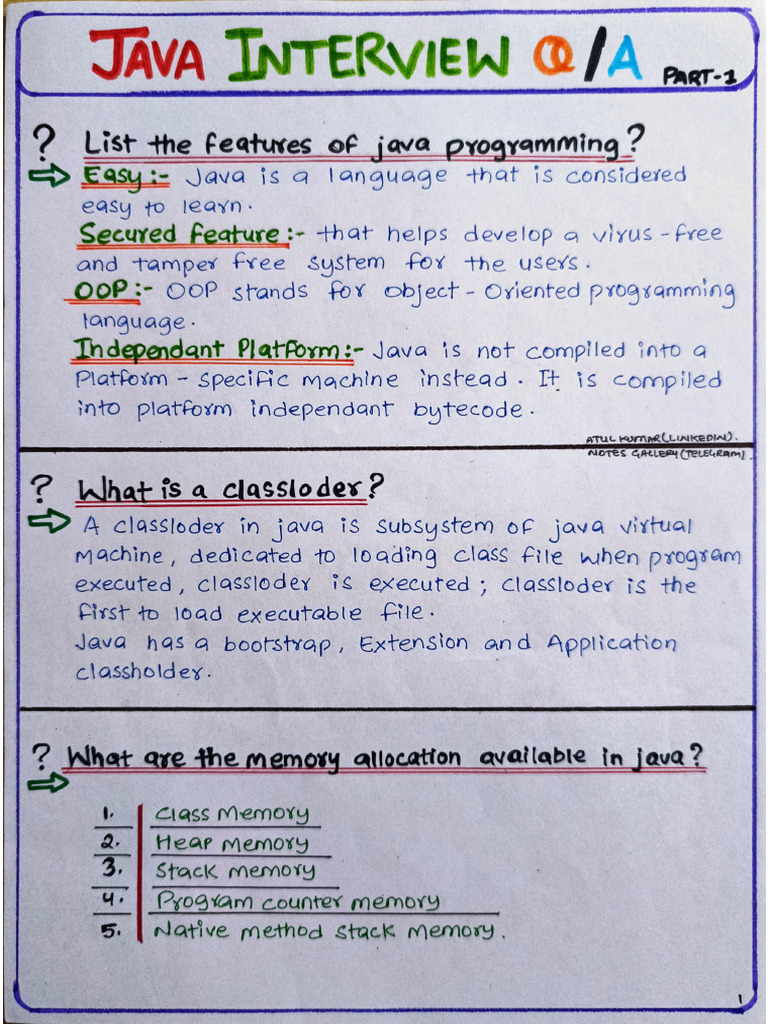 JAVA INTERVIEW Q/A PART-1
? List the features of java programming?
Easy:- Java is a language that is considered
easy to learn.
Secured feature:- that helps develop a virus-free
and tamper free system for the users.
OOP:- OOP stands for object-Oriented programming
language.
Independant Platform:- Java is not compiled into a
Platform-specific machine instead. It is compiled
into platform independant bytecode.
ATUL KUMAR(LINKEDIN).
NOTES GALLERY(TELEGRAM).
? What is a classloder?
A classloder in java is subsystem of java virtual
Machine, dedicated to loading class file when program
executed, classloder is executed; classloder is the
first to load executable file.
Java has a bootstrap, Extension and Application
classholder.
? What are the memory allocation available in java?
1. Class Memory
2. Heap memory
3. Stack memory
4. Program counter memory
5. Native method stack memory.
1